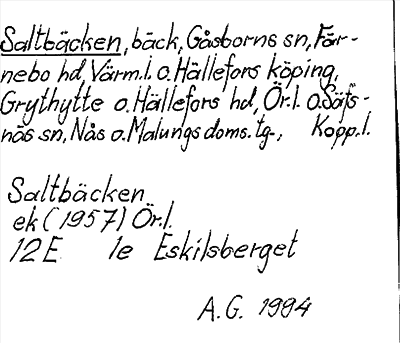 Saltbäcken, bäck, Gåsborns sn, Fär-
nebo hd, Värm.l. o. Hällefors köping,
Grythytte o. Hällefors hd, Ör.l. o. Säfs-
näs sn, Nås o. Malungs doms.tg., Kopp.l.
Saltbäcken
ek (1957) Ör.l.
12E 1e Eskilsberget
A.G. 1994